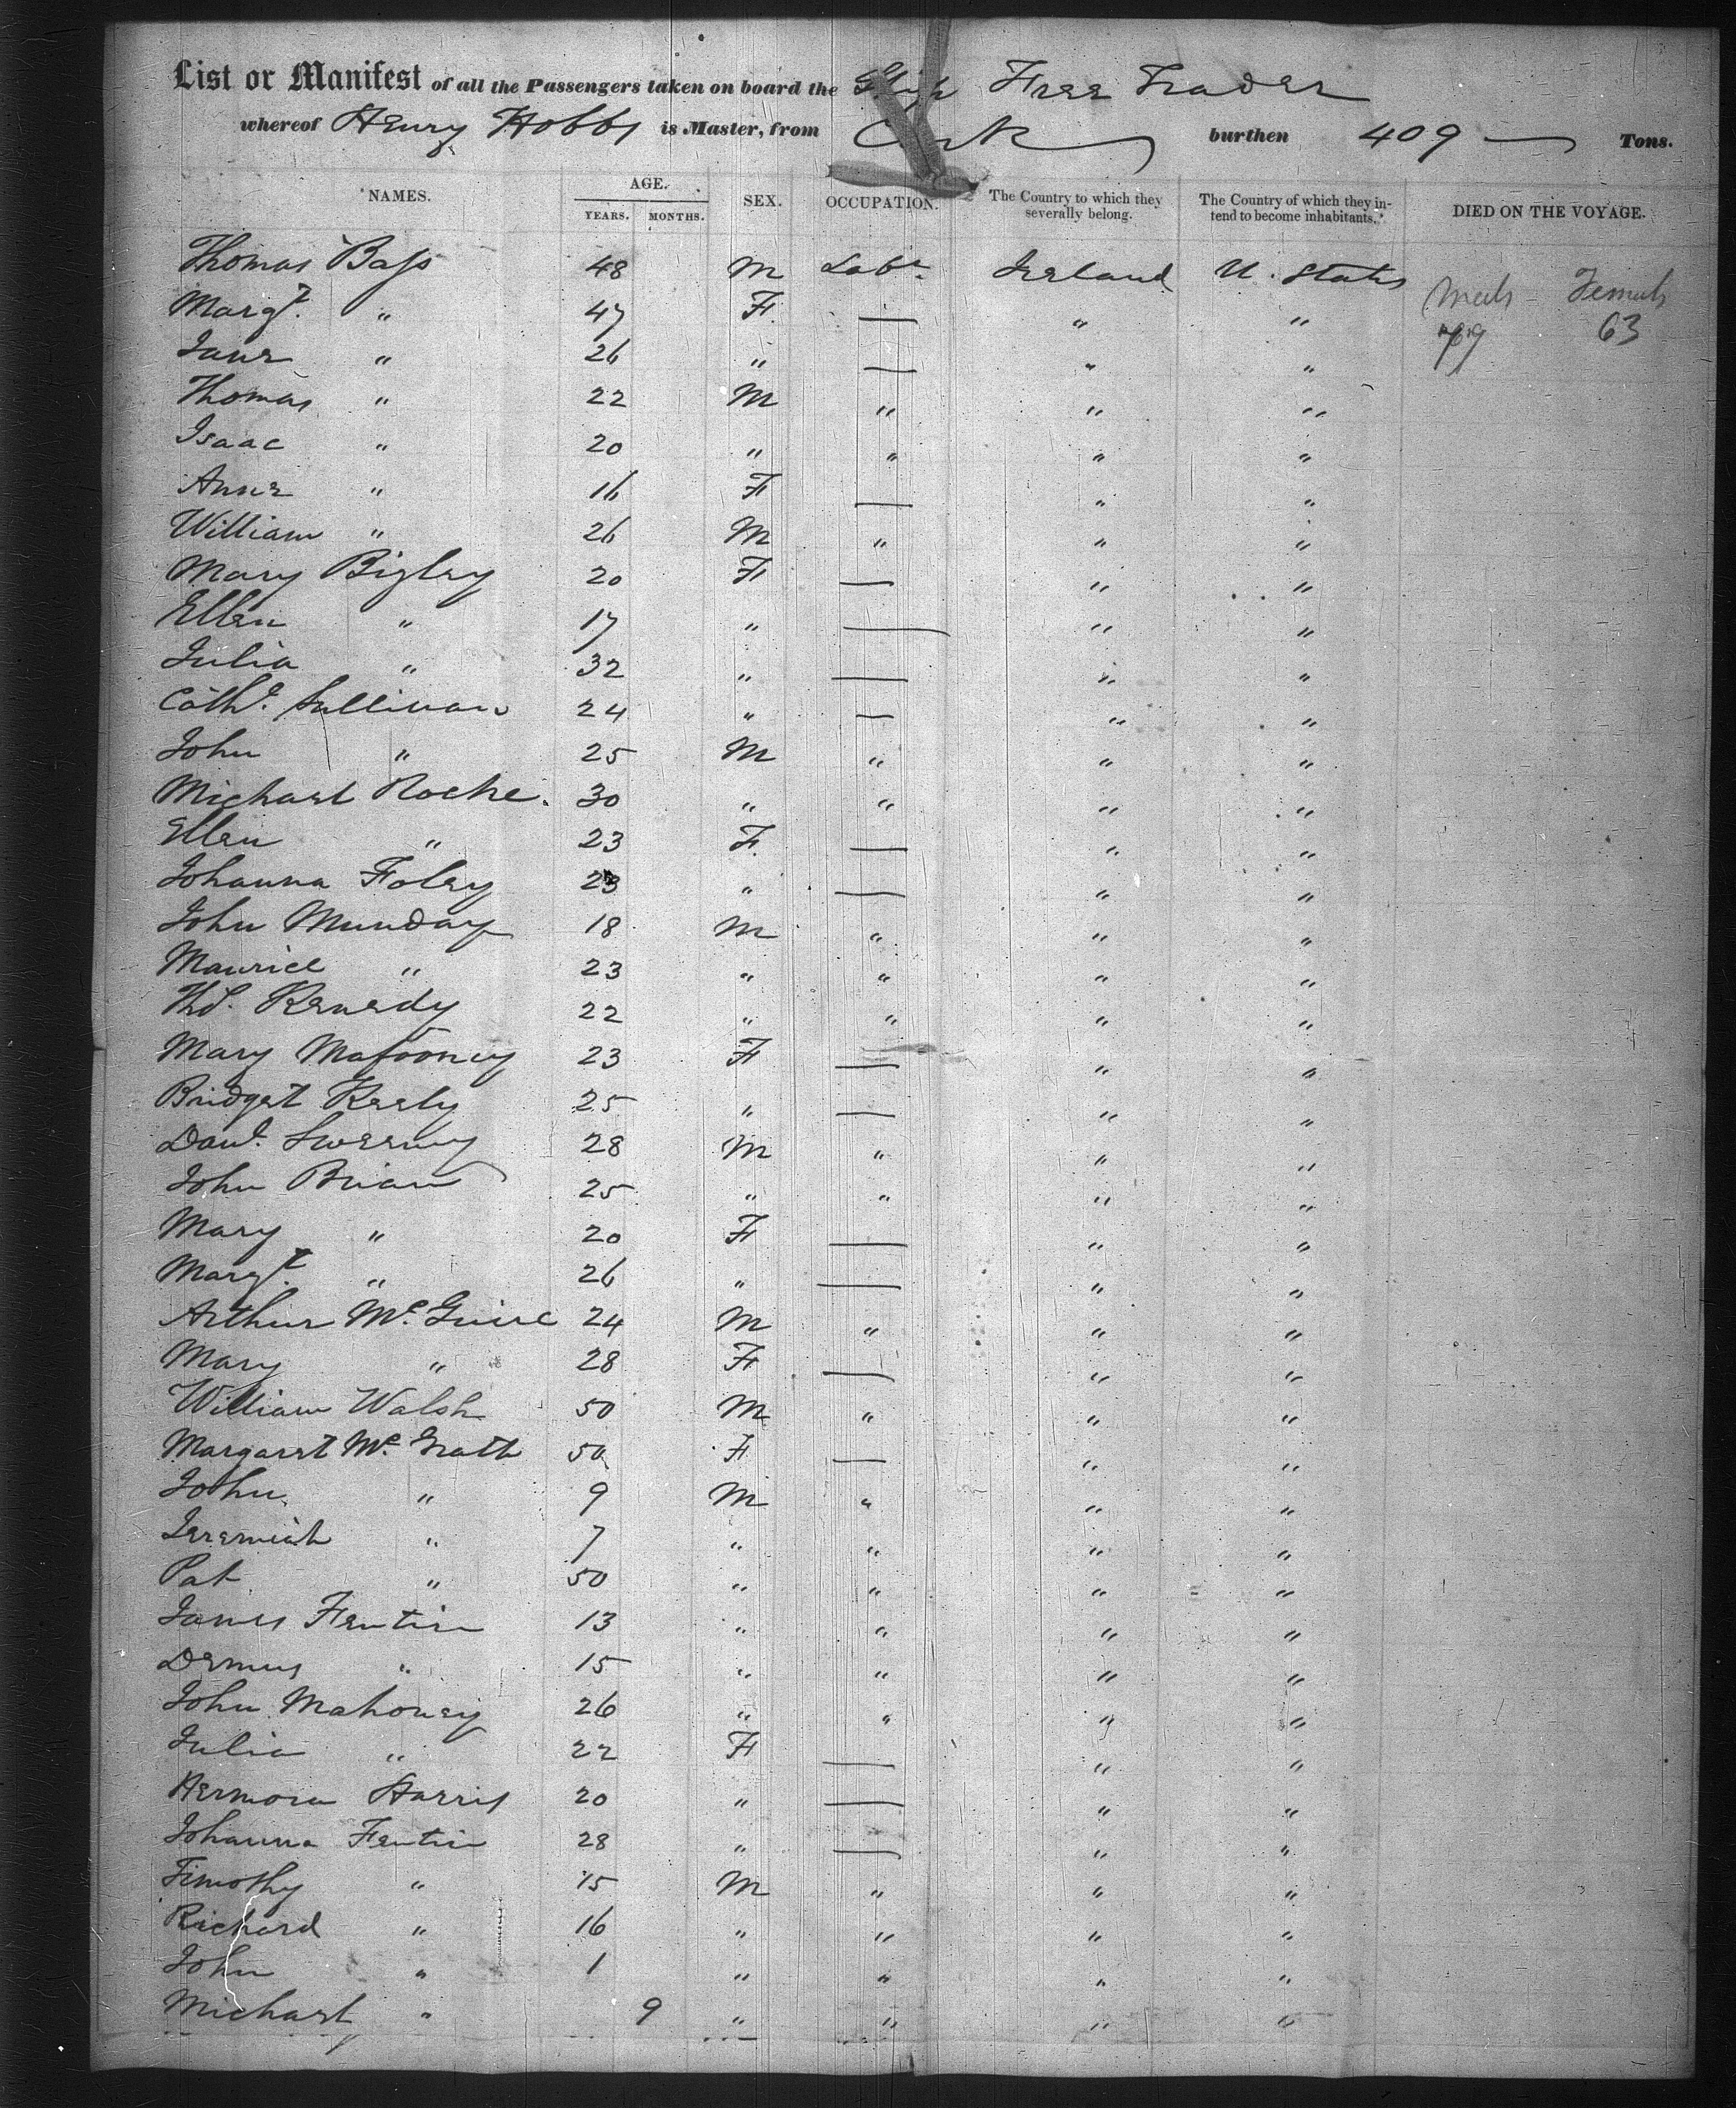 List or Manifest of all the Passengers taken on board the Ship Free Trader
whereof Henry Hobbs is Master, from Cork burthen 409 Tons.
NAMES. AGE. YEARS. MONTHS. SEX. OCCUPATION. The Country to which they severally belong. The Country of which they intend to become inhabitants. DIED ON THE VOYAGE.
Thomas Bass 48 M Labr. Ireland U. States
Males Females
Margt. " 47 F. — " "
79 63
Jane " 26 " — " "
Thomas " 22 M " " "
Isaac " 20 " " " "
Anne " 16 F — " "
William " 26 M " " "
Mary Bigley 20 F — " "
Ellen " 17 " — " "
Julia " 32 " — " "
Cathe. Sullivan 24 " — " "
John " 25 M " " "
Michael Roche. 30 " " " "
Ellen " 23 F. — " "
Johanna Foley 23 " — " "
John Munday 18 M " " "
Maurice " 23 " " " "
Ths. Kenedy 22 " " " "
Mary 23 F — " "
Bridget Keely 25 " — " "
Danl. Sweeny 28 M " " "
John Brian 25 " " " "
Mary " 20 F — " "
Margt. " 26 " — " "
Arthur Mc.Guire 24 M " " "
Mary " 28 F — " "
William Walsh 50 M " " "
Margaret Mc.Grath 50 F — " "
John " 9 M " " "
Jeremiah " 7 " " " "
Pat " 50 " " " "
James Fentin 13 " " " "
" 15 " " " "
John Mahoney 26 " " " "
Julia " 22 F — " "
Harris 20 " — " "
Johanna Fentin 28 " — " "
Timothy " 15 M " " "
Richard " 16 " " " "
John " 1 " " " "
Michael " 9 " " " "